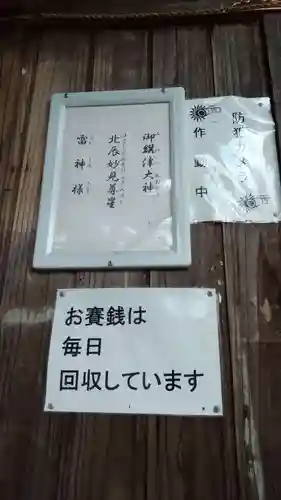 防犯カメラ
作動中
御鎮津大神
北辰妙見尊星
雷神様
お賽銭は
毎日
回収しています